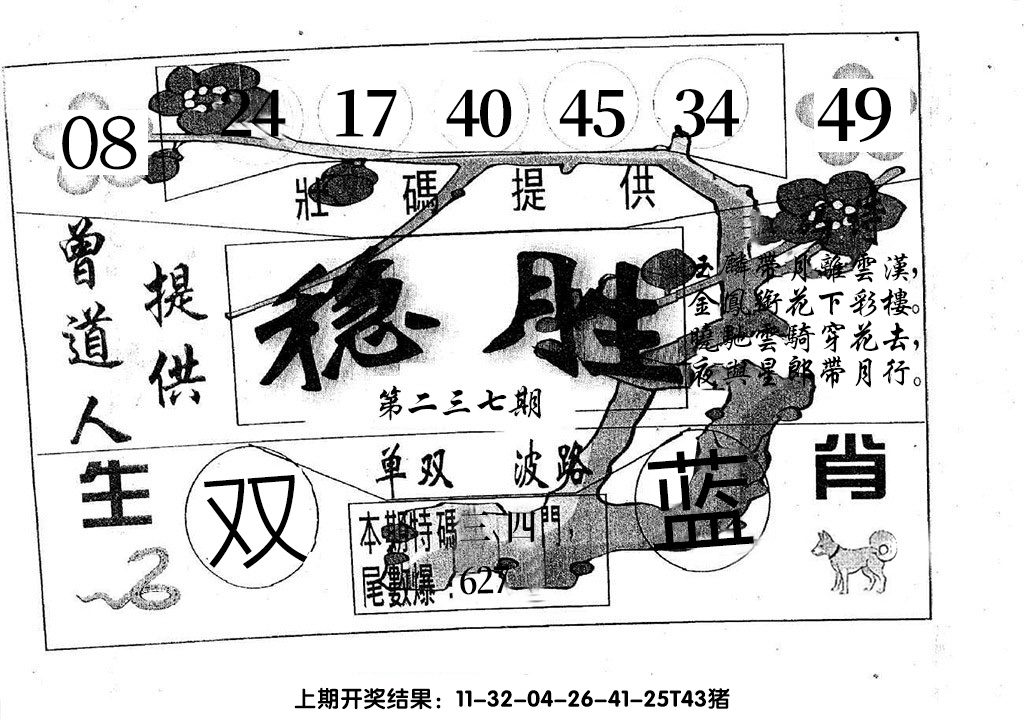 08 24 17 40 45 34 49
壯碼提供
曾道人
提供
稳胜
第二三七期
玉麟帶月離雲漢，
金鳳銜花下彩樓。
曉馳雲騎穿花去，
夜與星郎帶月行。
单双 波路
生肖
双
蓝
本期特碼三、四門，
尾數爆：627
上期开奖结果：11-32-04-26-41-25T43猪